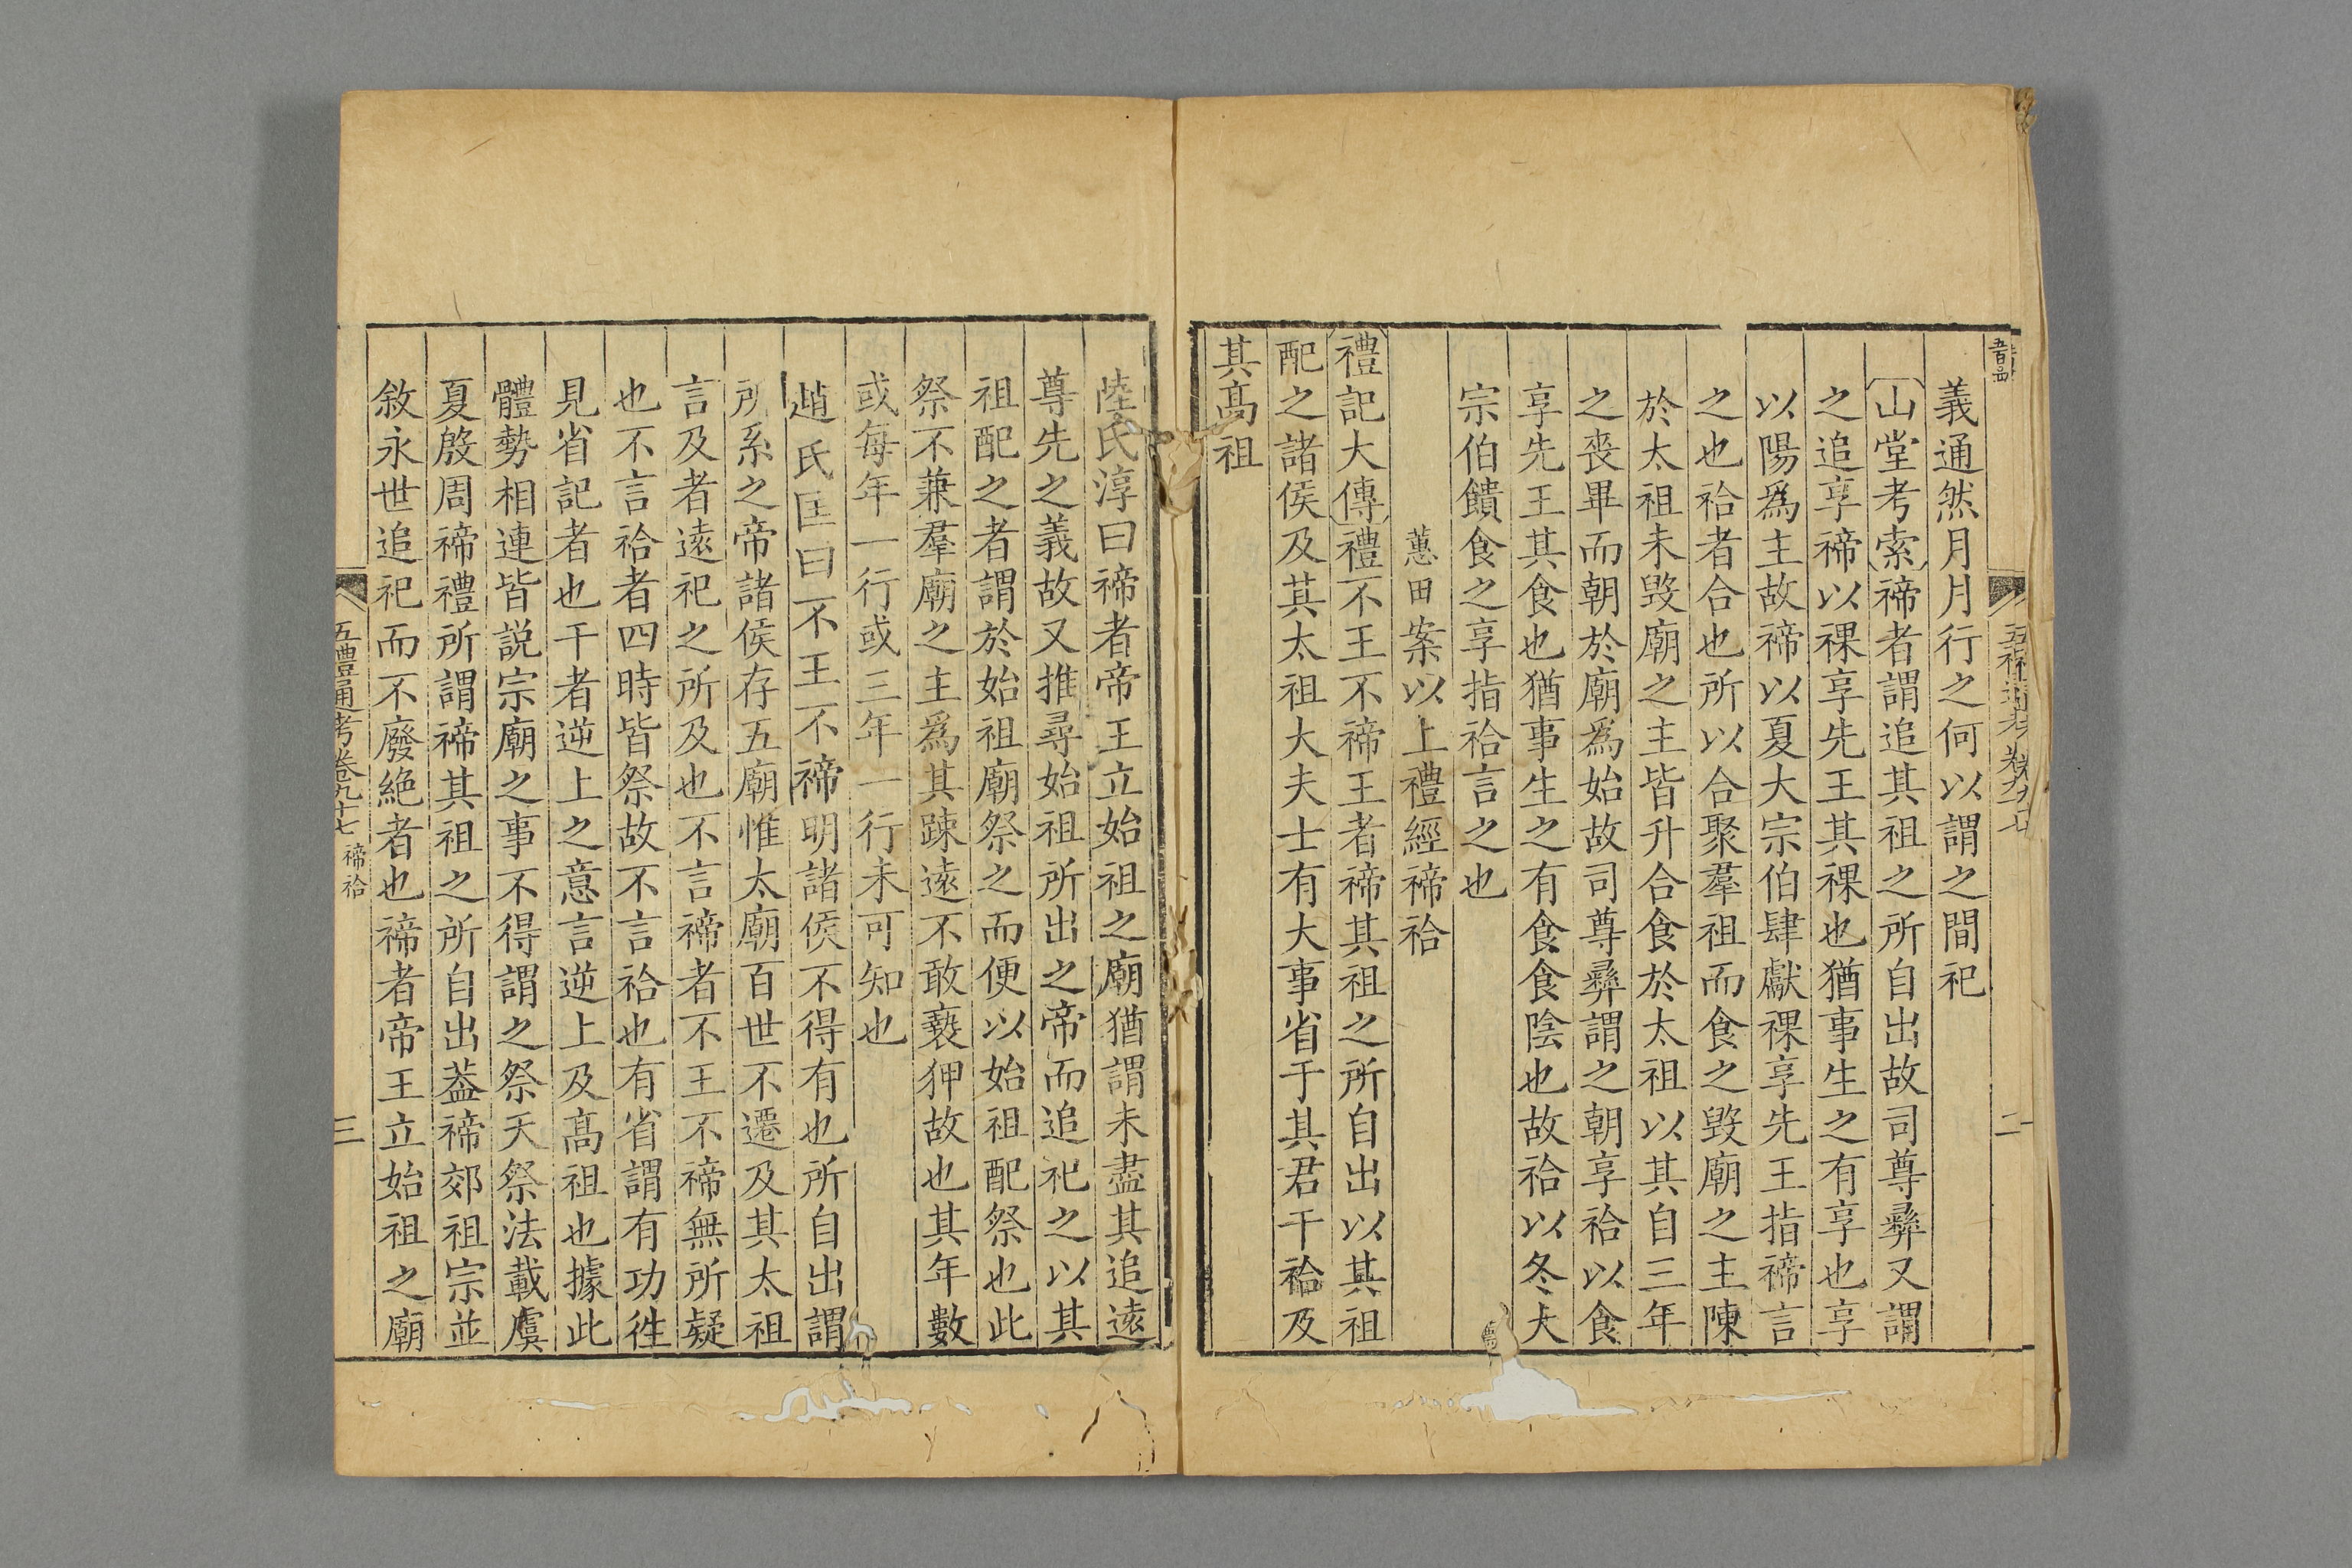 五禮通考 卷九十七
二
義通然月月行之何以謂之間祀
山堂考索禘者謂追其祖之所自出故司尊彞又謂
之追享禘以祼享先王其祼也猶事生之有享也享
以陽爲主故禘以夏大宗伯肆獻祼享先王指禘言
之也祫者合也所以合聚羣祖而食之毀廟之主陳
於太祖未毀廟之主皆升合食於太祖以其自三年
之喪畢而朝於廟爲始故司尊彞謂之朝享祫以食
享先王其食也猶事生之有食食陰也故祫以冬大
宗伯饋食之享指祫言之也
蕙田案以上禮經禘祫
禮記大傳禮不王不禘王者禘其祖之所自出以其祖
配之諸侯及其太祖大夫士有大事省于其君干祫及
其高祖
陸氏淳曰禘者帝王立始祖之廟猶謂未盡其追遠
尊先之義故又推尋始祖所出之帝而追祀之以其
祖配之者謂於始祖廟祭之而便以始祖配祭也此
祭不兼羣廟之主爲其踈遠不敢褻狎故也其年數
或每年一行或三年一行未可知也
趙氏匡曰不王不禘明諸侯不得有也所自出謂
所系之帝諸侯存五廟惟太廟百世不遷及其太祖
言及者遠祀之所及也不言禘者不王不禘無所疑
也不言祫者四時皆祭故不言祫也有省謂有功徃
見省記者也干者逆上之意言逆上及高祖也據此
體勢相連皆説宗廟之事不得謂之祭天祭法載虞
夏殷周禘禮所謂禘其祖之所自出葢禘郊祖宗並
敘永世追祀而不廢絶者也禘者帝王立始祖之廟
五禮通考卷九十七 禘祫
三